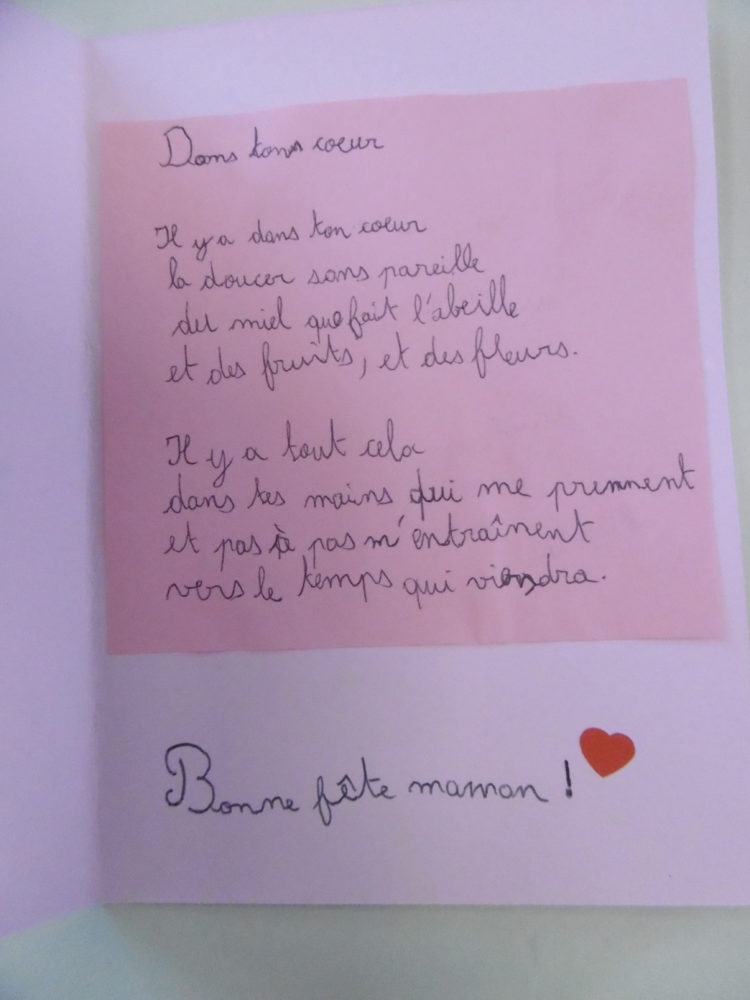 Dans tons coeur
Il y a dans ton coeur
la doucer sans pareille
du miel que fait l'abeille
et des fruits, et des fleurs.
Il y a tout cela
dans tes mains qui me prennent
et pas à pas m'entraînent
vers le temps qui viendra.
Bonne fête maman !